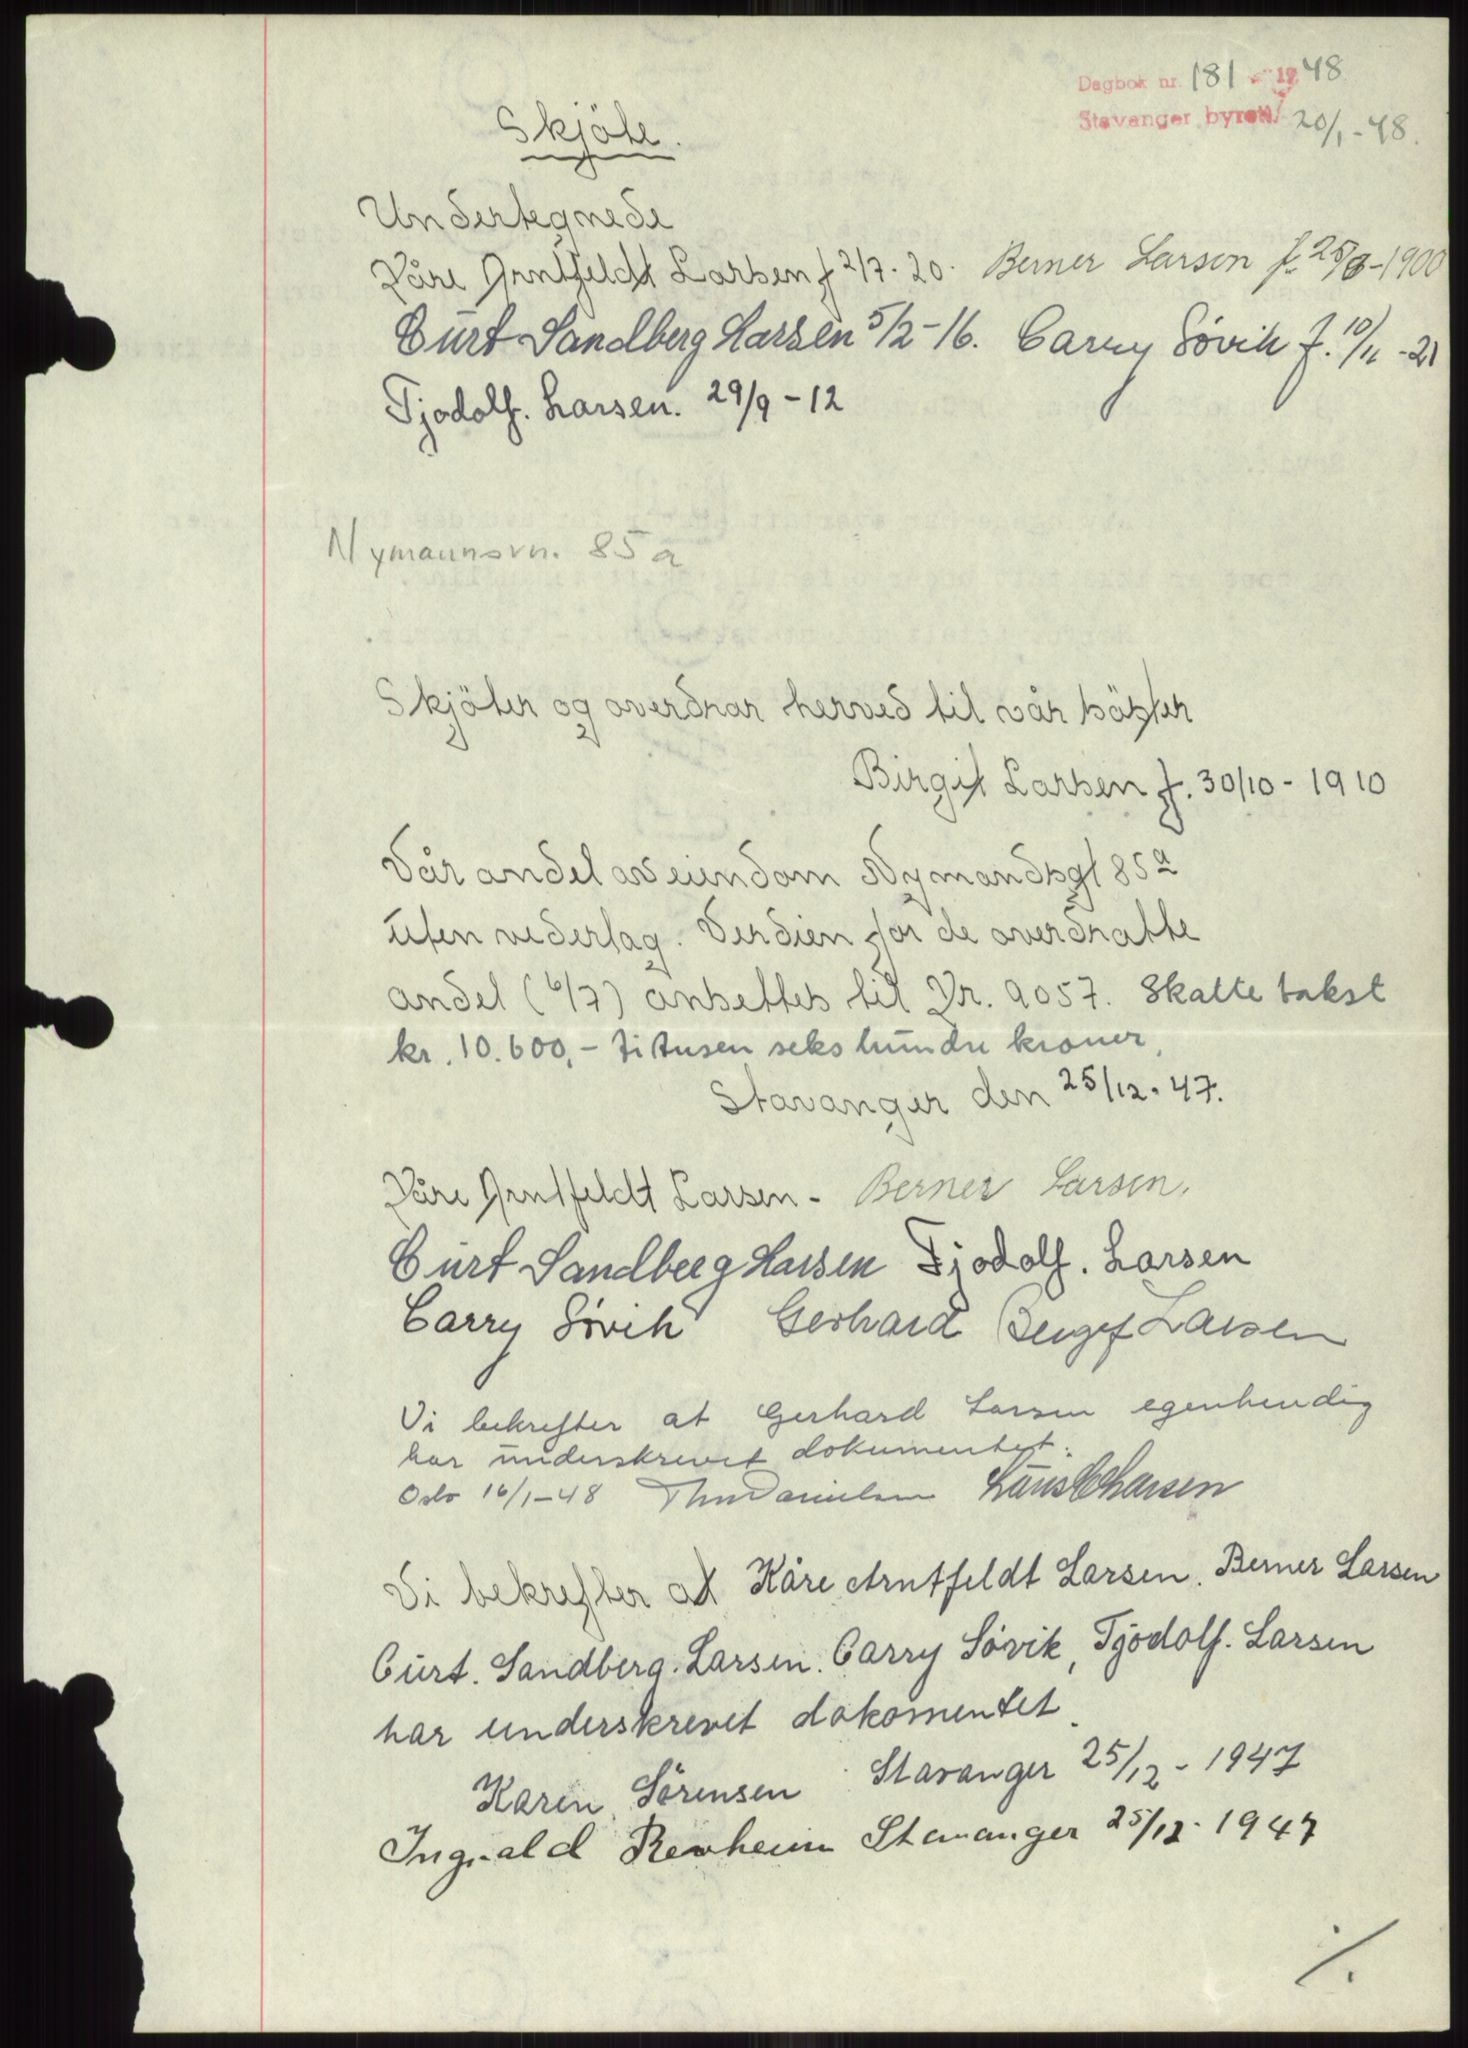 Dagbok nr. 181 - 1948
Stavanger byrett 20/1-48.
Skjöte.
Undertegnede
Kåre Arntfeldt Larsen f 2/7-20. Berner Larsen f. 25/8-1900
Curt Sandberg Larsen 5/2-16. Carry Søvik f. 10/11-21
Tjodolf. Larsen. 29/9-12
Nymannsvn. 85a
Skjöter og overdrar herved til vår söster
Birgit Larsen f. 30/10-1910
Vår andel av eiendom Nymandsgt 85a
uten vederlag. Verdien for de overdratte
andel (6/7) ansettes til Kr. 9057. Skatte takst
kr. 10.600,- titusen seks hundre kroner,
Stavanger den 25/12-47.
Kåre Arntfeldt Larsen - Berner Larsen.
Curt Sandberg Larsen Tjodolf. Larsen
Carry Søvik Gerhard Larsen
Vi bekrefter at Gerhard Larsen egenhendig
har underskrevet dokumentet.
Oslo 16/1-48 Danielsen Larsen
Vi bekrefter at Kåre Arntfeldt Larsen. Berner Larsen
Curt. Sandberg. Larsen. Carry Søvik, Tjodolf. Larsen
har underskrevet dokomentet.
Karen Sörensen Stavanger 25/12-1947
Ingvald Revheim Stavanger 25/12-1947